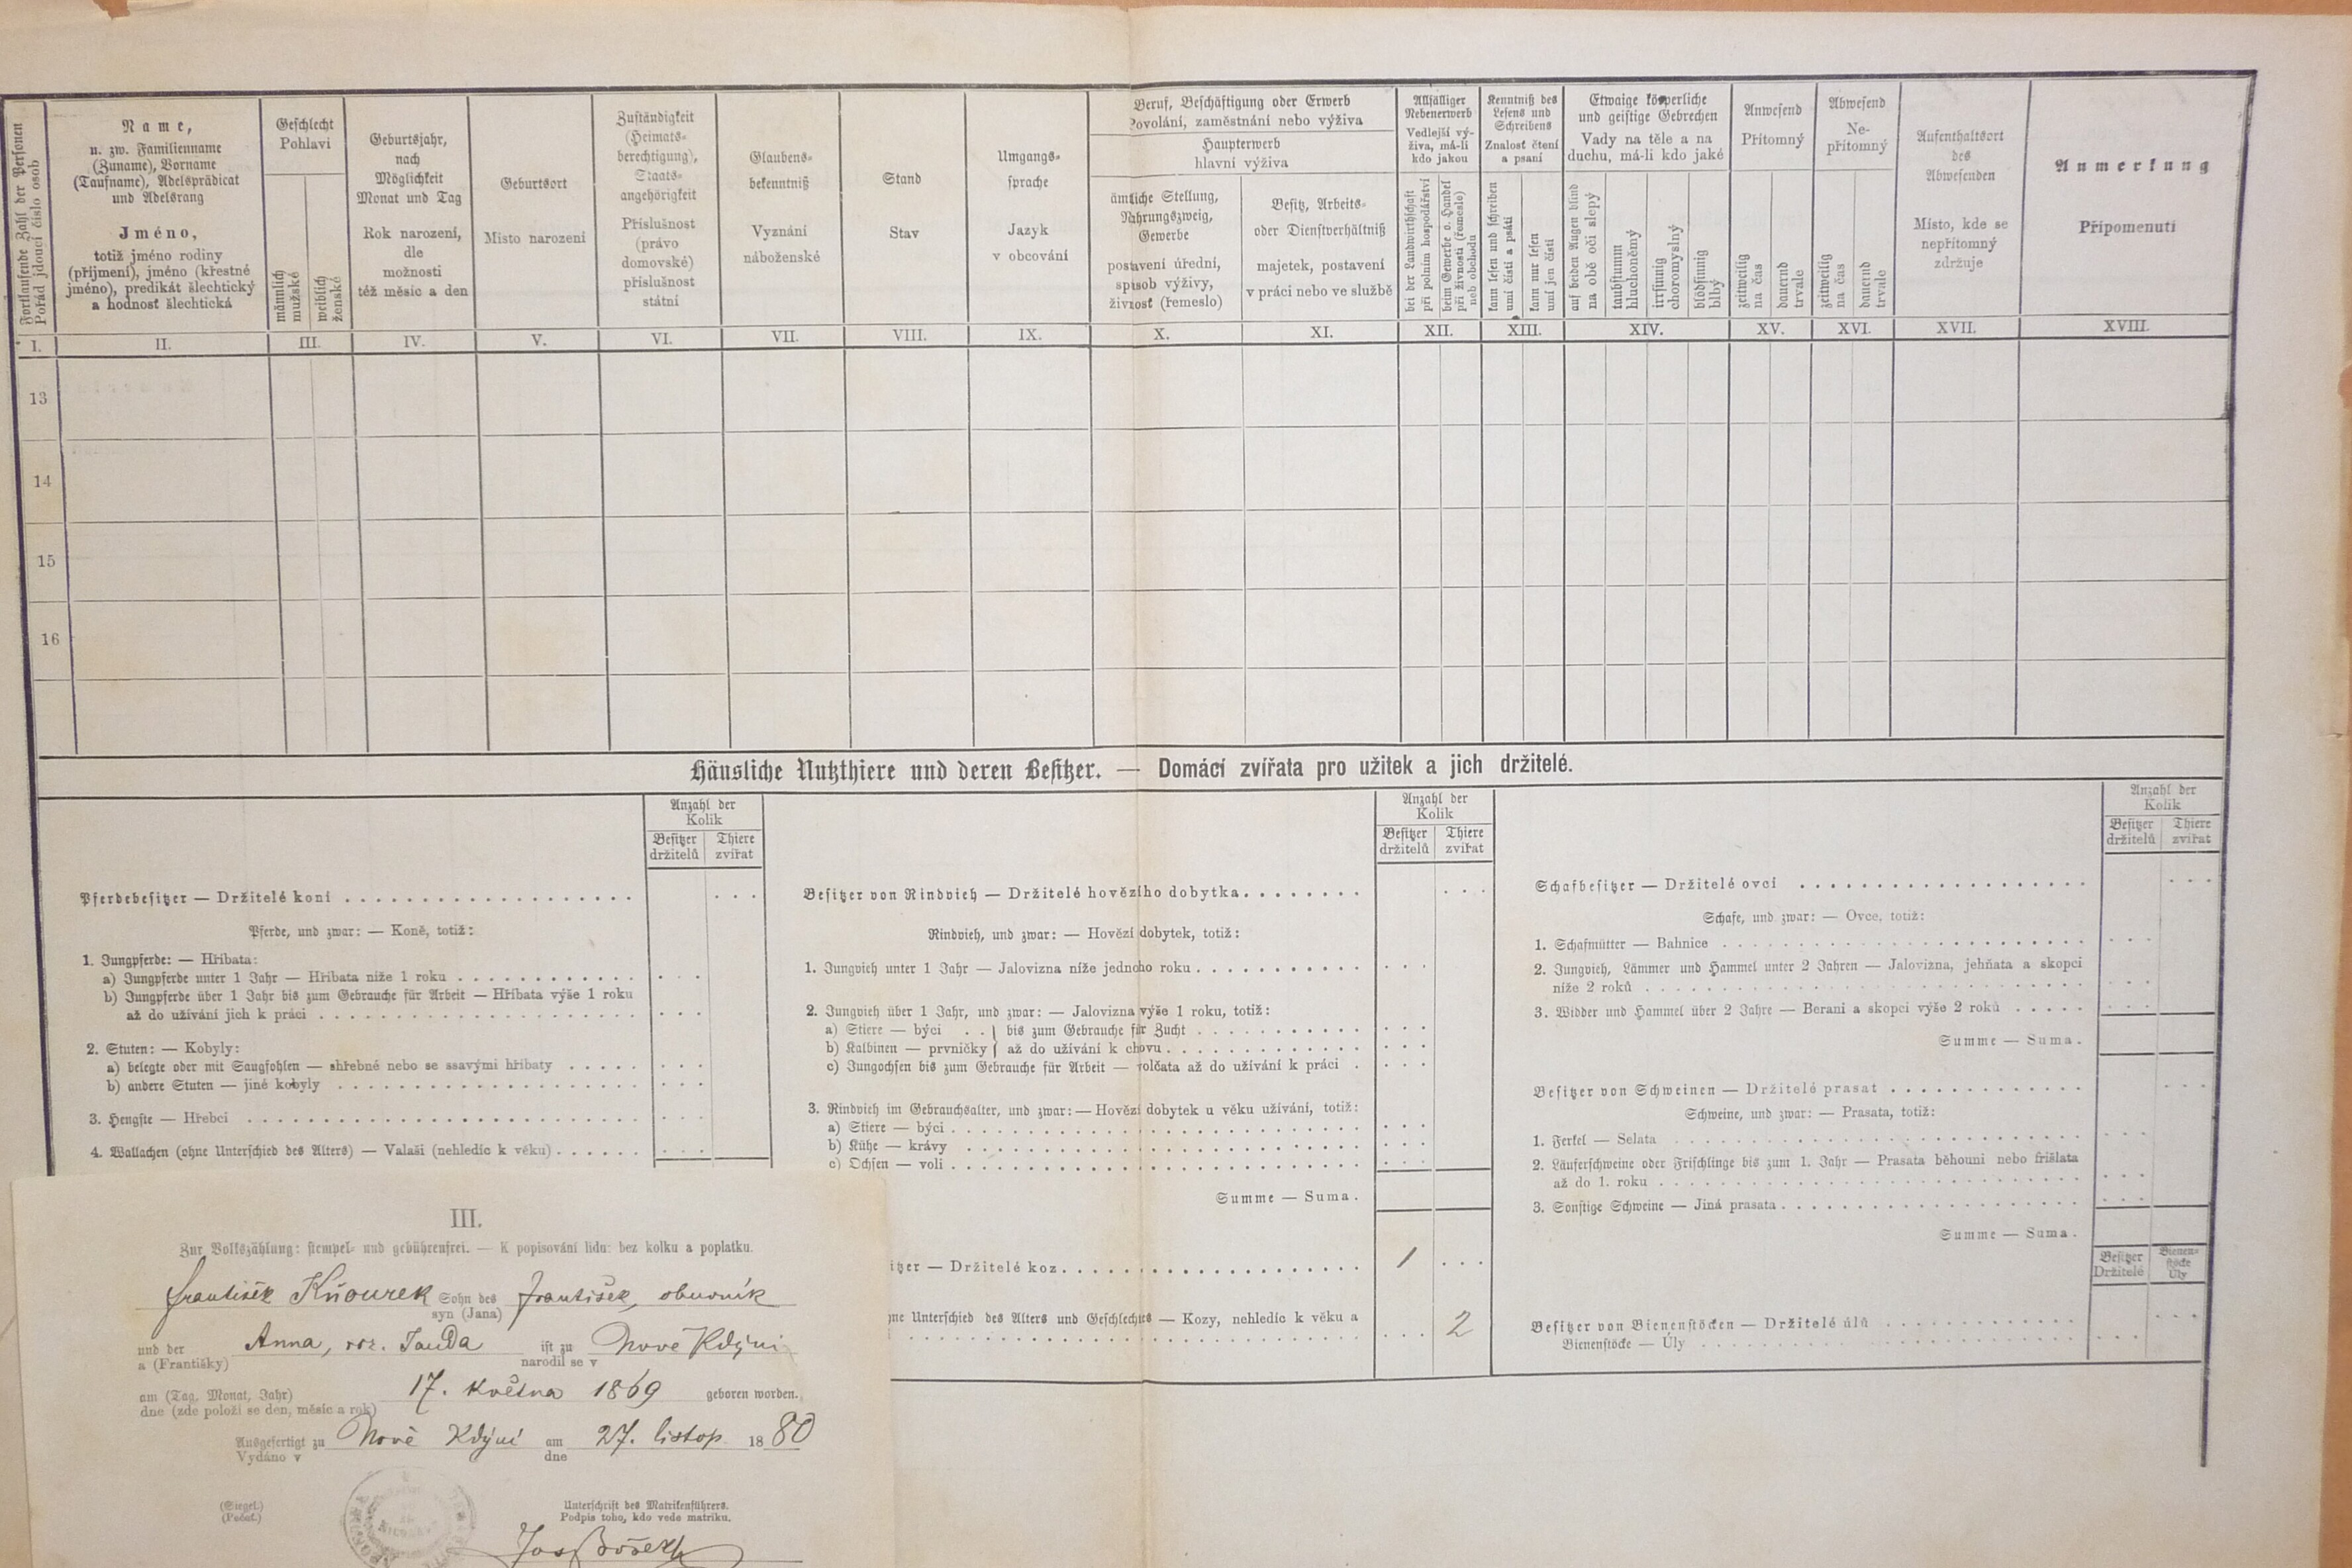 Fortlaufende Zahl der Personen
Pořád jdoucí číslo osob
Name,
u. zw. Familienname
(Zuname), Vorname
(Taufname), Adelsprädicat
und Adelsrang
Jméno,
totiž jméno rodiny
(příjmení), jméno (křestné
jméno), predikát šlechtický
a hodnost šlechtická
Geschlecht
Pohlaví
männlich
mužské
weiblich
ženské
Geburtsjahr,
nach
Möglichkeit
Monat und Tag
Rok narození,
dle
možnosti
též měsíc a den
Geburtsort
Místo narození
Zuständigkeit
(Heimats-
berechtigung),
Staats-
angehörigkeit
Příslušnost
(právo
domovské)
příslušnost
státní
Glaubens-
bekenntniß
Vyznání
náboženské
Stand
Stav
Umgangs-
sprache
Jazyk
v obcování
Beruf, Beschäftigung oder Erwerb
Povolání, zaměstnání nebo výživa
Haupterwerb
hlavní výživa
ämtliche Stellung,
Nahrungszweig,
Gewerbe
postavení úřední,
spůsob výživy,
živnost (řemeslo)
Besitz, Arbeits-
oder Dienstverhältniß
majetek, postavení
v práci nebo ve službě
Allfälliger
Nebenerwerb
Vedlejší vý-
živa, má-li
kdo jakou
bei der Landwirthschaft
při polním hospodářství
beim Gewerbe o. Handel
při živnosti (řemesle)
neb obchodu
Kenntniß des
Lesens und
Schreibens
Znalosť čtení
a psaní
kann lesen und schreiben
umí čísti a psáti
kann nur lesen
umí jen čísti
Etwaige körperliche
und geistige Gebrechen
Vady na těle a na
duchu, má-li kdo jaké
auf beiden Augen blind
na obě oči slepý
taubstumm
hluchoněmý
irrsinnig
choromyslný
blödsinnig
blbý
Anwesend
Přítomný
zeitweilig
na čas
dauernd
trvale
Abwesend
Ne-
přítomný
zeitweilig
na čas
dauernd
trvale
Aufenthaltsort
des
Abwesenden
Místo, kde se
nepřítomný
zdržuje
Anmerkung
Připomenutí
I. II. III. IV. V. VI. VII. VIII. IX. X. XI. XII. XIII. XIV. XV. XVI. XVII. XVIII.
13
14
15
16
Häusliche Nutzthiere und deren Besitzer. — Domácí zvířata pro užitek a jich držitelé.
Anzahl der
Kolik
Besitzer
držitelů
Thiere
zvířat
Pferdebesitzer — Držitelé koní
Pferde, und zwar: — Koně, totiž:
1. Jungpferde: — Hříbata:
a) Jungpferde unter 1 Jahr — Hříbata níže 1 roku
b) Jungpferde über 1 Jahr bis zum Gebrauche für Arbeit — Hříbata výše 1 roku
až do užívání jich k práci
2. Stuten: — Kobyly:
a) belegte oder mit Saugfohlen — shřebné nebo se ssavými hříbaty
b) andere Stuten — jiné kobyly
3. Hengste — Hřebci
4. Wallachen (ohne Unterschied des Alters) — Valaši (nehledíc k věku)
Anzahl der
Kolik
Besitzer
držitelů
Thiere
zvířat
Besitzer von Rindvieh — Držitelé hovězího dobytka
Rindvieh, und zwar: — Hovězí dobytek, totiž:
1. Jungvieh unter 1 Jahr — Jalovizna níže jednoho roku
2. Jungvieh über 1 Jahr, und zwar: — Jalovizna výše 1 roku, totiž:
a) Stiere — býci . . } bis zum Gebrauche für Zucht
b) Kalbinen — prvničky } až do užívání k chovu
c) Jungochsen bis zum Gebrauche für Arbeit — volčata až do užívání k práci
3. Rindvieh im Gebrauchsalter, und zwar: — Hovězí dobytek u věku užívání, totiž:
a) Stiere — býci
b) Kühe — krávy
c) Ochsen — voli
Summe — Suma.
itzer — Držitelé koz 1
ne Unterschied des Alters und Geschlechtes — Kozy, nehledíc k věku a
2
Anzahl der
Kolik
Besitzer
držitelů
Thiere
zvířat
Schafbesitzer — Držitelé ovcí
Schafe, und zwar: — Ovce, totiž:
1. Schafmütter — Bahnice
2. Jungvieh, Lämmer und Hammel unter 2 Jahren — Jalovizna, jehňata a skopci
níže 2 roků
3. Widder und Hammel über 2 Jahre — Berani a skopci výše 2 roků
Summe — Suma.
Besitzer von Schweinen — Držitelé prasat
Schweine, und zwar: — Prasata, totiž:
1. Ferkel — Selata
2. Läuferschweine oder Frischlinge bis zum 1. Jahr — Prasata běhouni nebo frišlata
až do 1. roku
3. Sonstige Schweine — Jiná prasata
Summe — Suma.
Besitzer
Držitelé
Bienen-
stöcke
Úly
Besitzer von Bienenstöcken — Držitelé úlů
Bienenstöcke — Úly
III.
Zur Volkszählung: stempel- und gebührenfrei. — K popisování lidu: bez kolku a poplatku.
František Kňourek Sohn des František, obuvník
syn (Jana)
und der Anna, roz. Janda ist zu Nové Kdýni
a (Františky) narodil se v
am (Tag, Monat, Jahr) 17. května 1869 geboren worden.
dne (zde položí se den, měsíc a rok)
Ausgefertigt zu Nové Kdýni am 27. listop 1880
Vydáno v dne
(Siegel.)
(Pečeť.)
Unterschrift des Matrikenführers.
Podpis toho, kdo vede matriku.